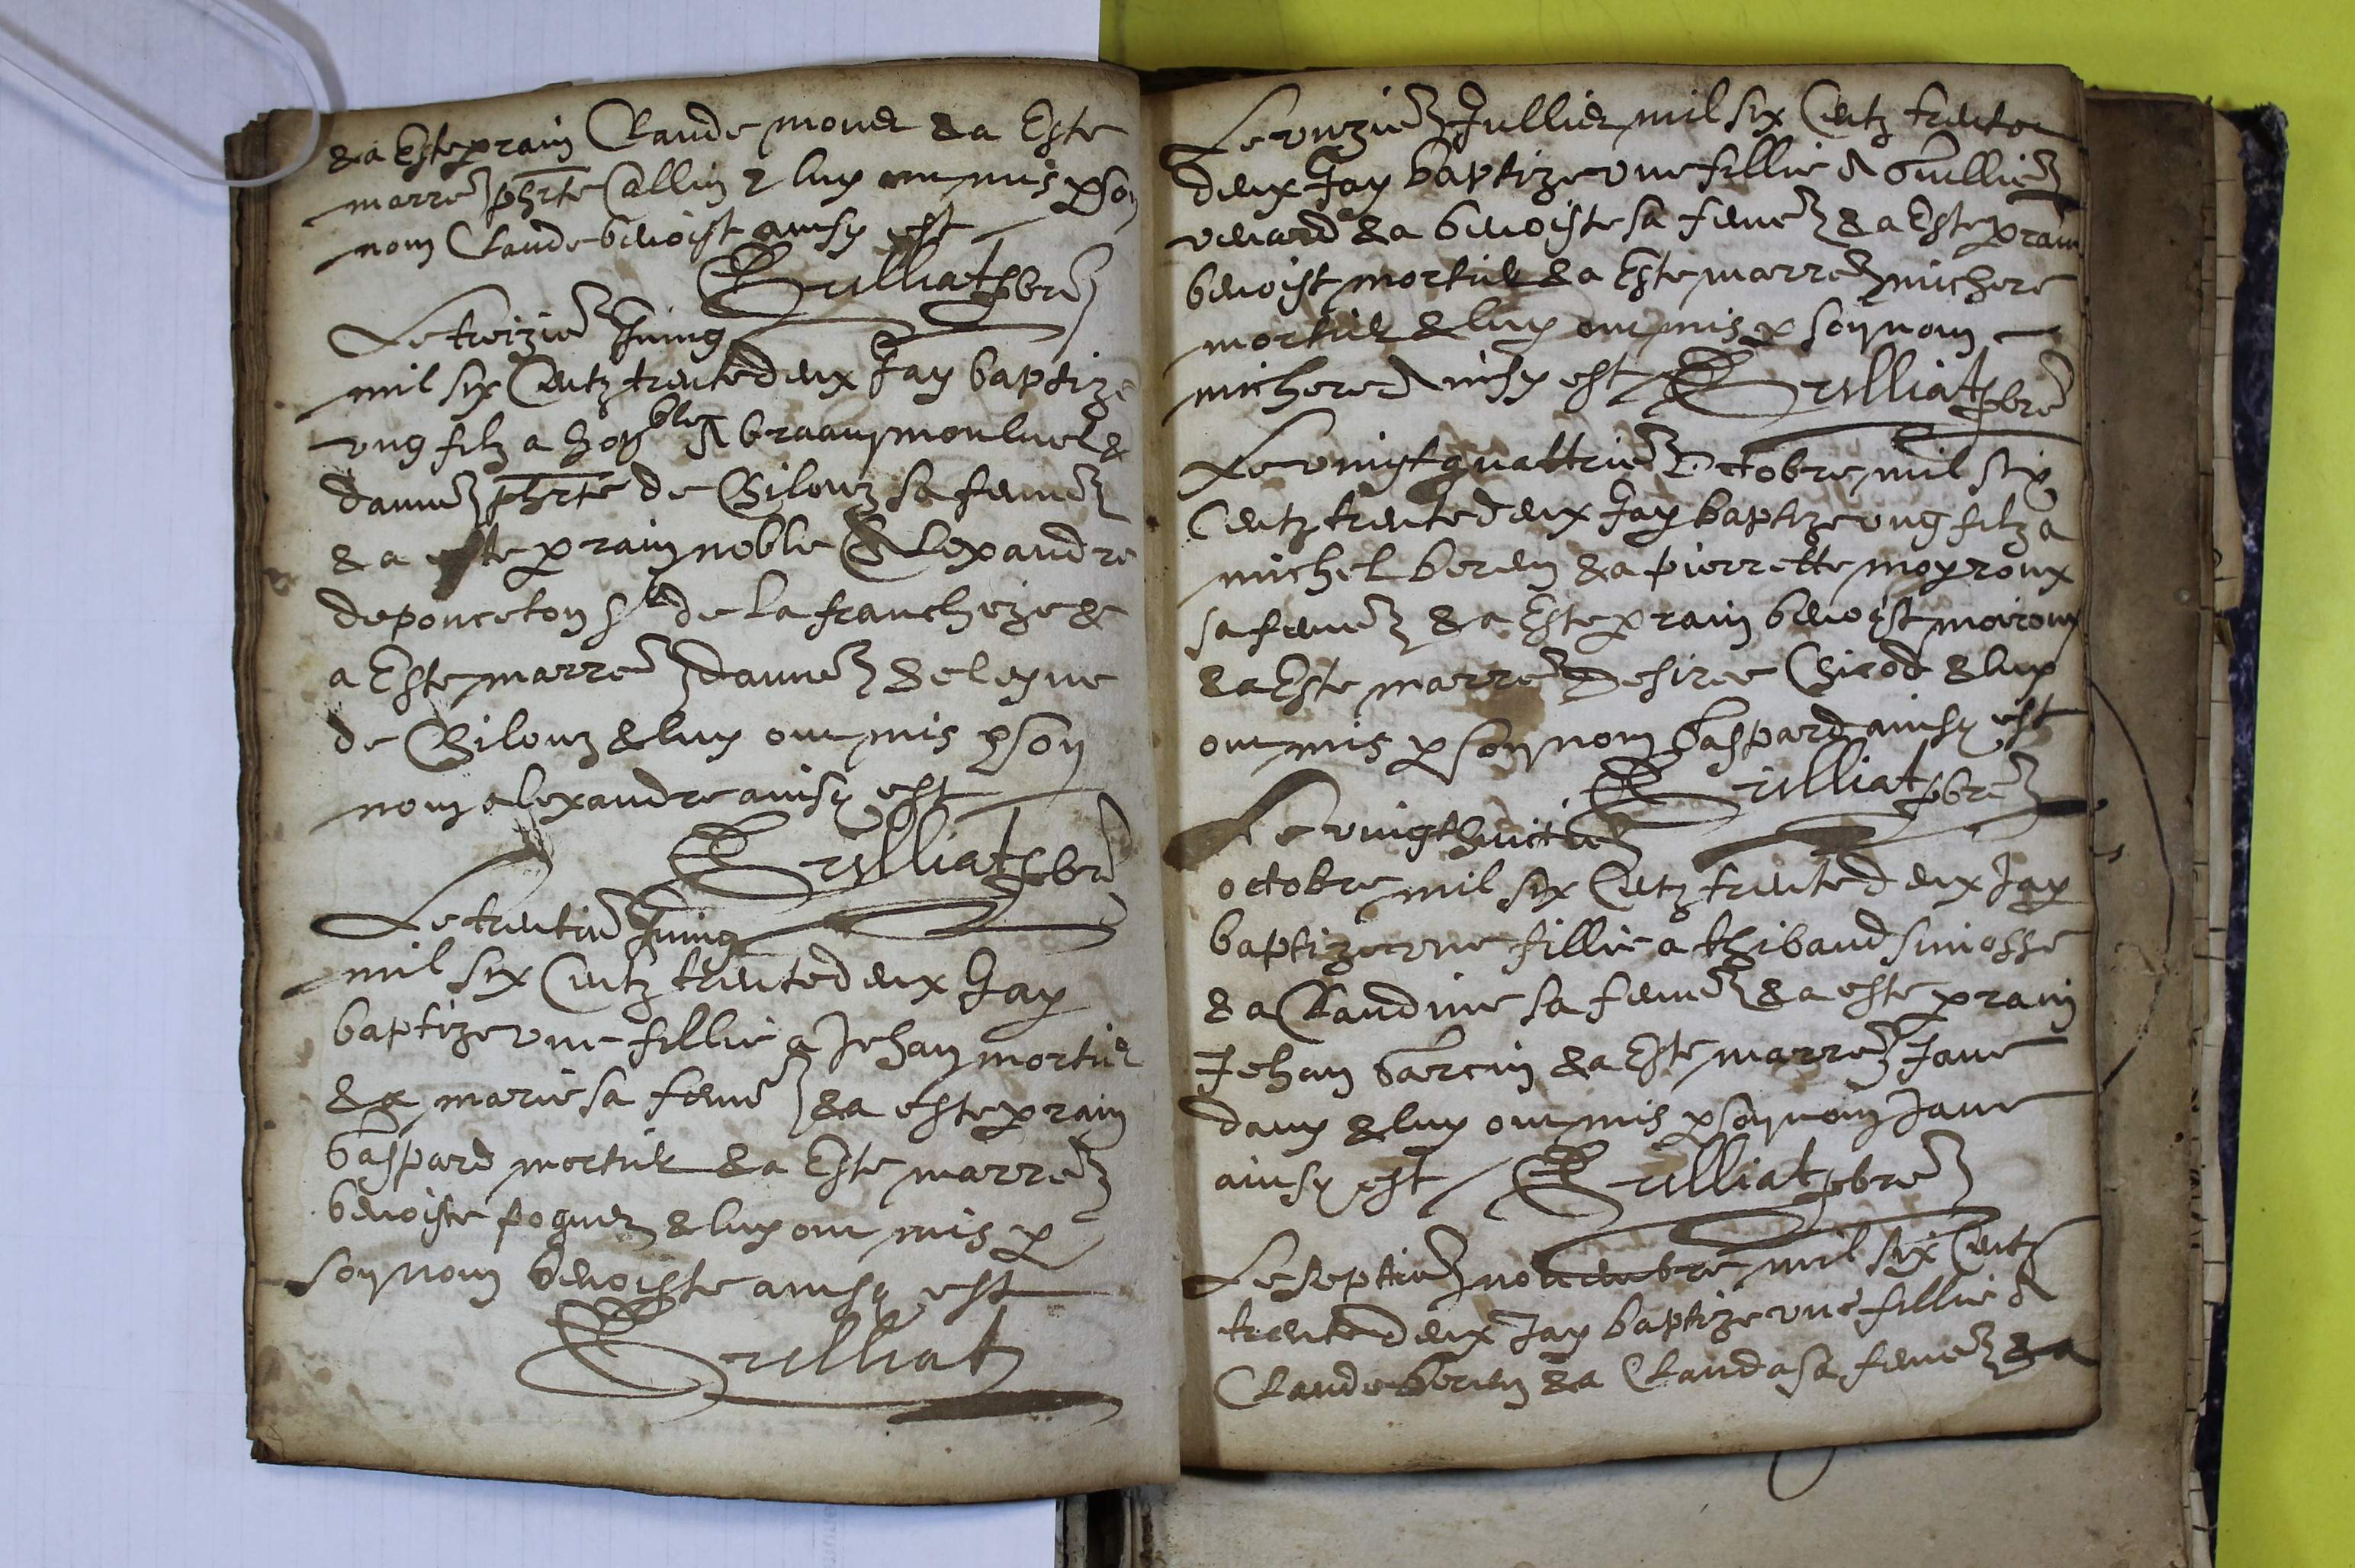 & a Este prain Claude monet & a Este
marre phrte Callin & luy ont mis p son
nom Claude benoist ainsy est
Trilliat pbre
Le treizie Juing
mil six Centz trente deux Jay baptize
ung filz a hoble Abraam moulnel &
damme phrte de Gilouz sa feme
& a este prain noble Alexandre
de ponceton sr de la francheze &
a Este marre damme heleyne
de Gilouz & luy ont mis p son
nom alexandre ainsy est
Trilliat pbre
Le trentie Juing
mil six Centz trente deux Jay
baptize une fillie a Jehan mortier
& a marie sa feme & a este prain
Gaspard mortier & a Este marre
benoiste poguez & luy ont mis p
son nom benoiste ainsy est
Trilliat
Le unzie Jullier mil six Centz trente
deux Jay baptize une fillie A Guillie
venard & a benoiste sa feme & a Este prain
benoist mortier & a Este marre michere
mortier & luy ont mis p son nom
michere Ainsy est Trilliat pbre
Le vingt quattrie Octobre mil six
Centz trente deux Jay baptize ung filz a
michel beren & a pierrette moyroux
sa feme & a Este prain benoist moiroux
& a Este marre Desiree Girod & luy
ont mis p son nom Gaspard ainsy est
Trilliat pbre
Le vingt huitie
octobre mil six Centz trente deux Jay
baptize une fillie a thibaud simosse
& a Claudine sa feme & a este prain
Jehan Garcin & a Este marre Jane
dany & luy ont mis p son nom Jane
ainsy est Trilliat pbre
Le septie novembre mil six Centz
trente deux Jay baptize une fillie A
Claude beren & a Clauda sa feme & a